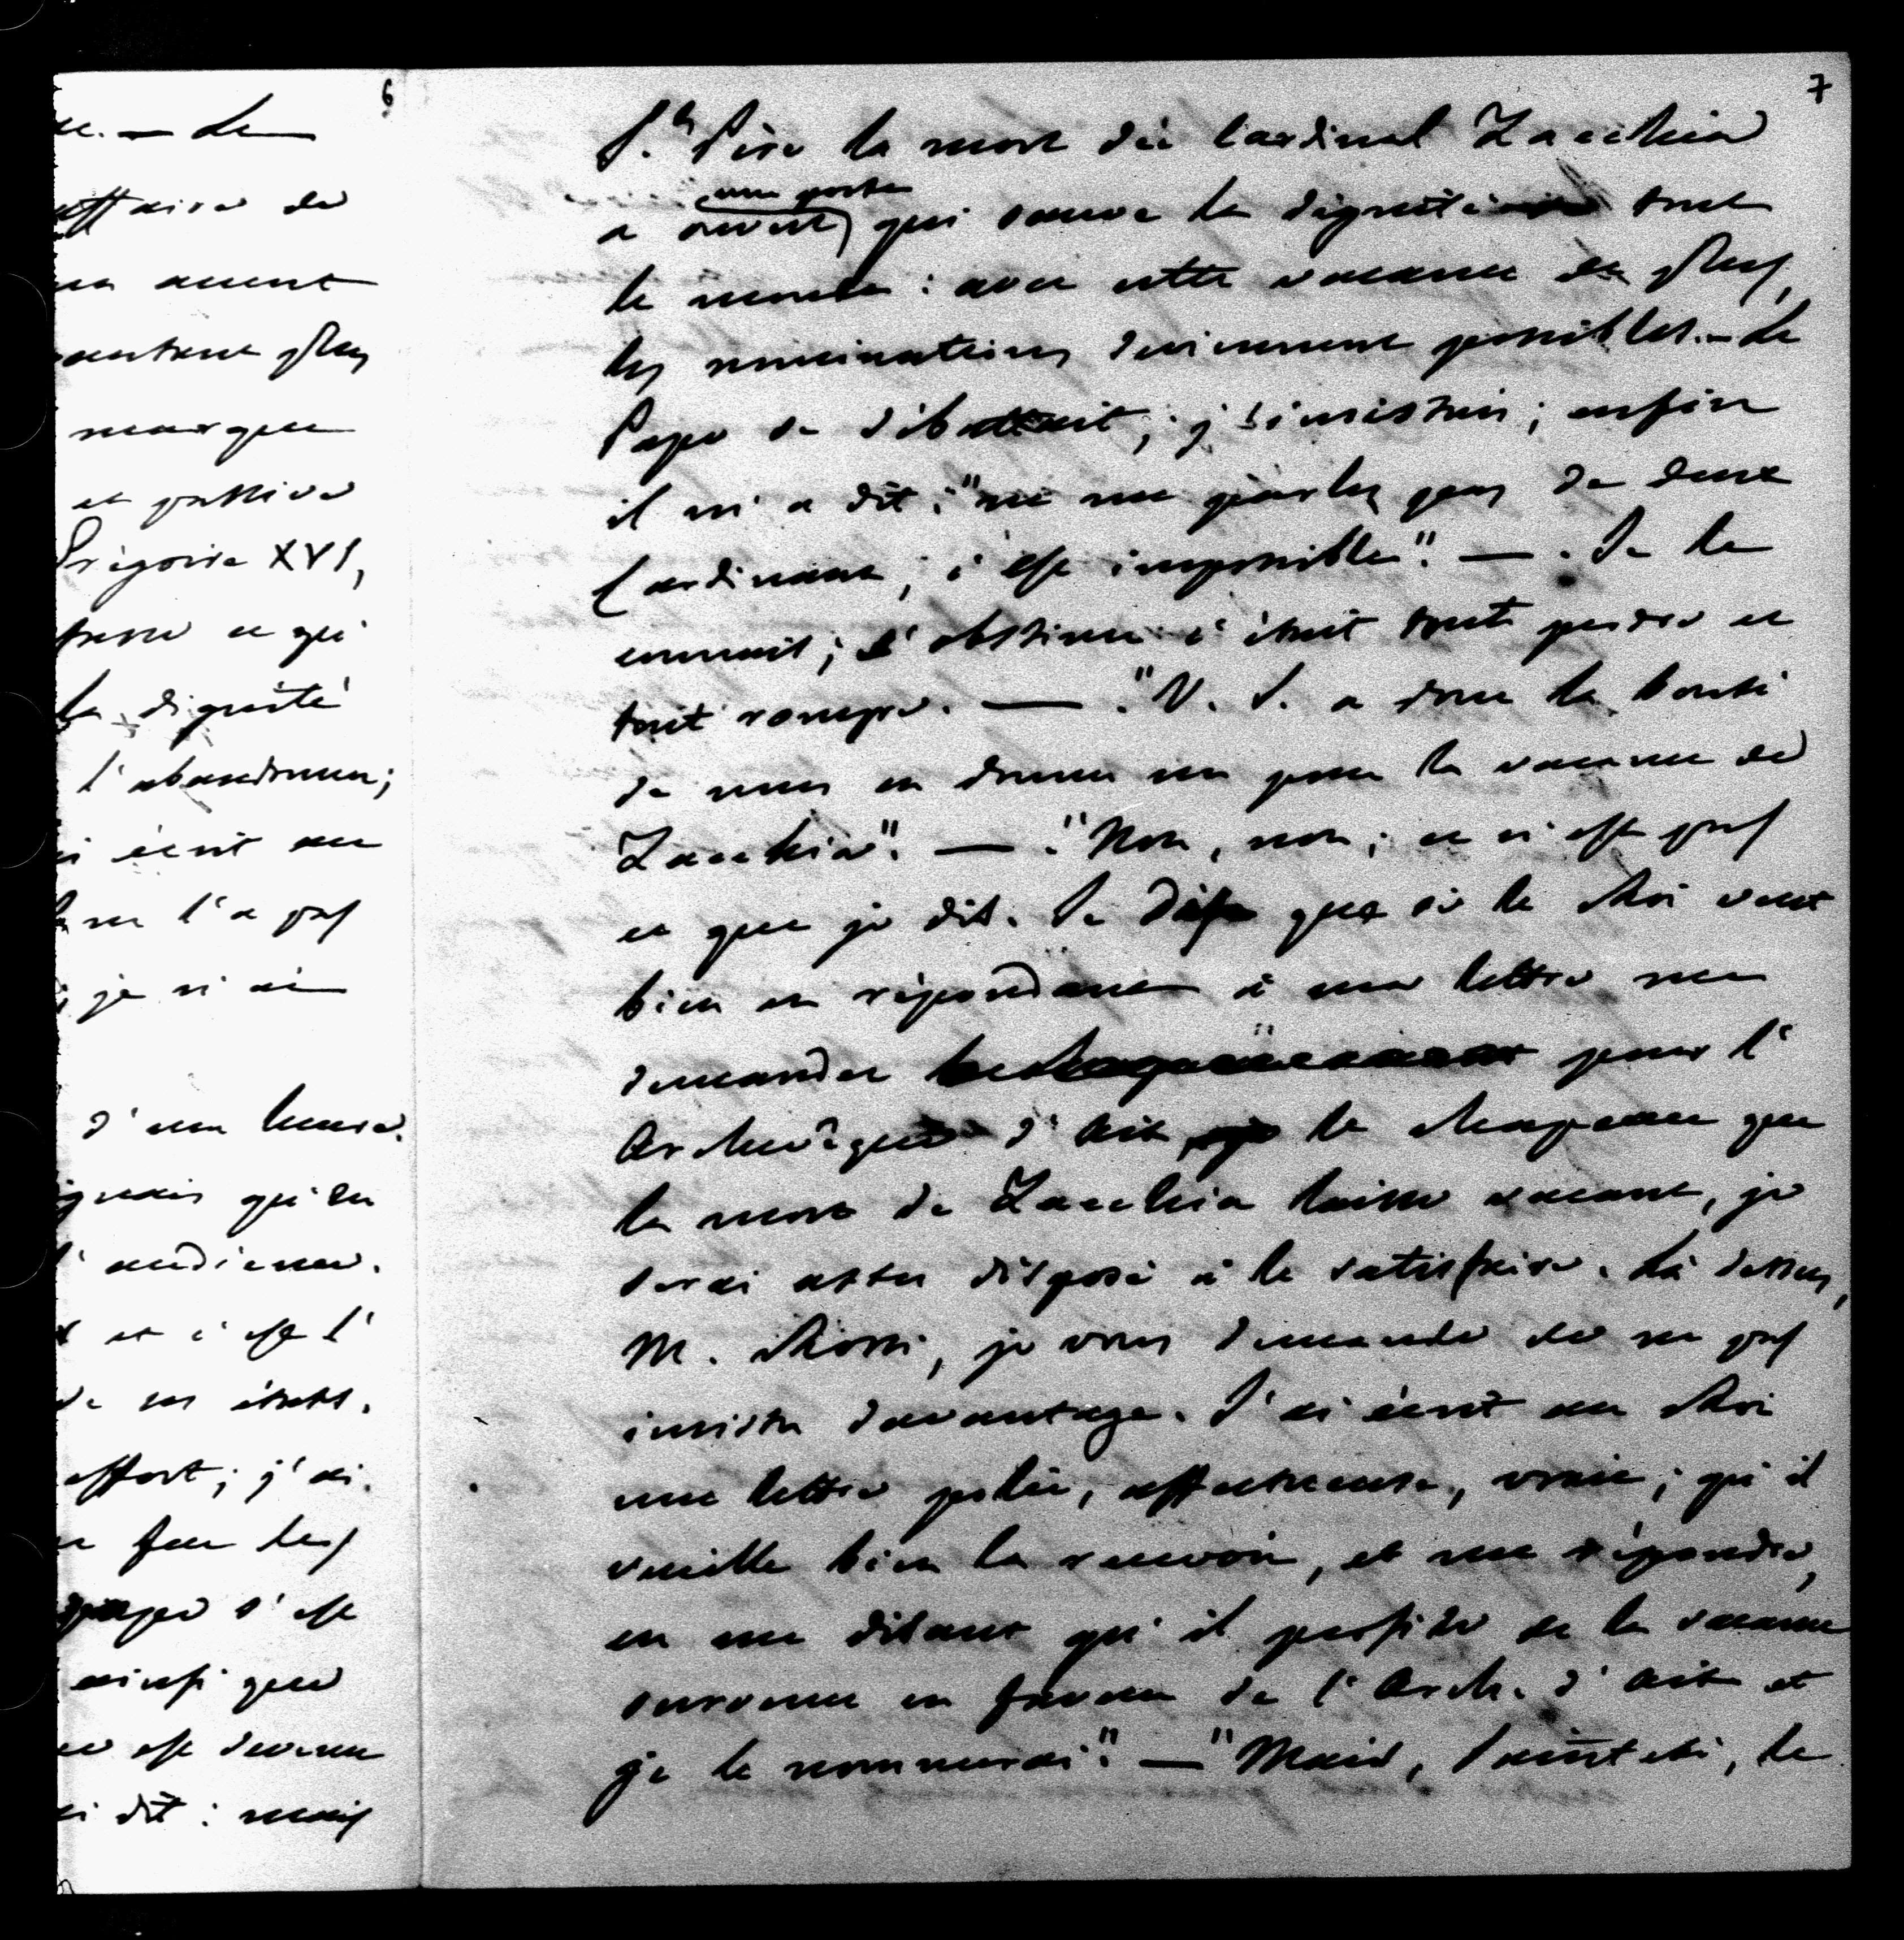 6
se. — Le
affaire de
un accent
autant plus
marque
et passive
Grégoire XVI,
presse ce qui
la dignité
l'abandonner;
ai écrit au
ne l'a pas
je n'ai
d'une heure.
qu'en
l'audience.
et c'est l'
de ses états.
effort; j'ai
que les
s'est
ainsi que
est devenu
ai dit: mais
7
St. Père la mort du Cardinal Zacchia
une porte
a ouvert qui sauve la dignité de tout
le monde: avec cette vacance de plus,
les nominations deviennent possibles. — Le
Pape se débattait; j'insistais; enfin
il m'a dit: "ne me parlez pas de deux
Cardinaux; c'est impossible". — Je le
connais; s'obstiner c'était tout perdre et
tout rompre. — "V. S. a donc la bonté
de nous en donner un pour la vacance de
Zacchia". — "Non, non; ce n'est pas
ce que je dis. Je dis que si le Roi veut
bien en répondant à ma lettre me
demander pour l'
Archevêque d'Aix le chapeau que
la mort de Zacchia laisse vacant, je
serai assez disposé à le satisfaire. Là dessus,
M. Rossi, je vous demande de ne pas
insister davantage. J'ai écrit au Roi
une lettre polie, affectueuse, vraie; qu'il
veuille bien la recevoir, et me répondre,
en me disant qu'il profite de la vacance
survenue en faveur de l'Arch. d'Aix et
je le nommerai". — "Mais, Sainteté, le